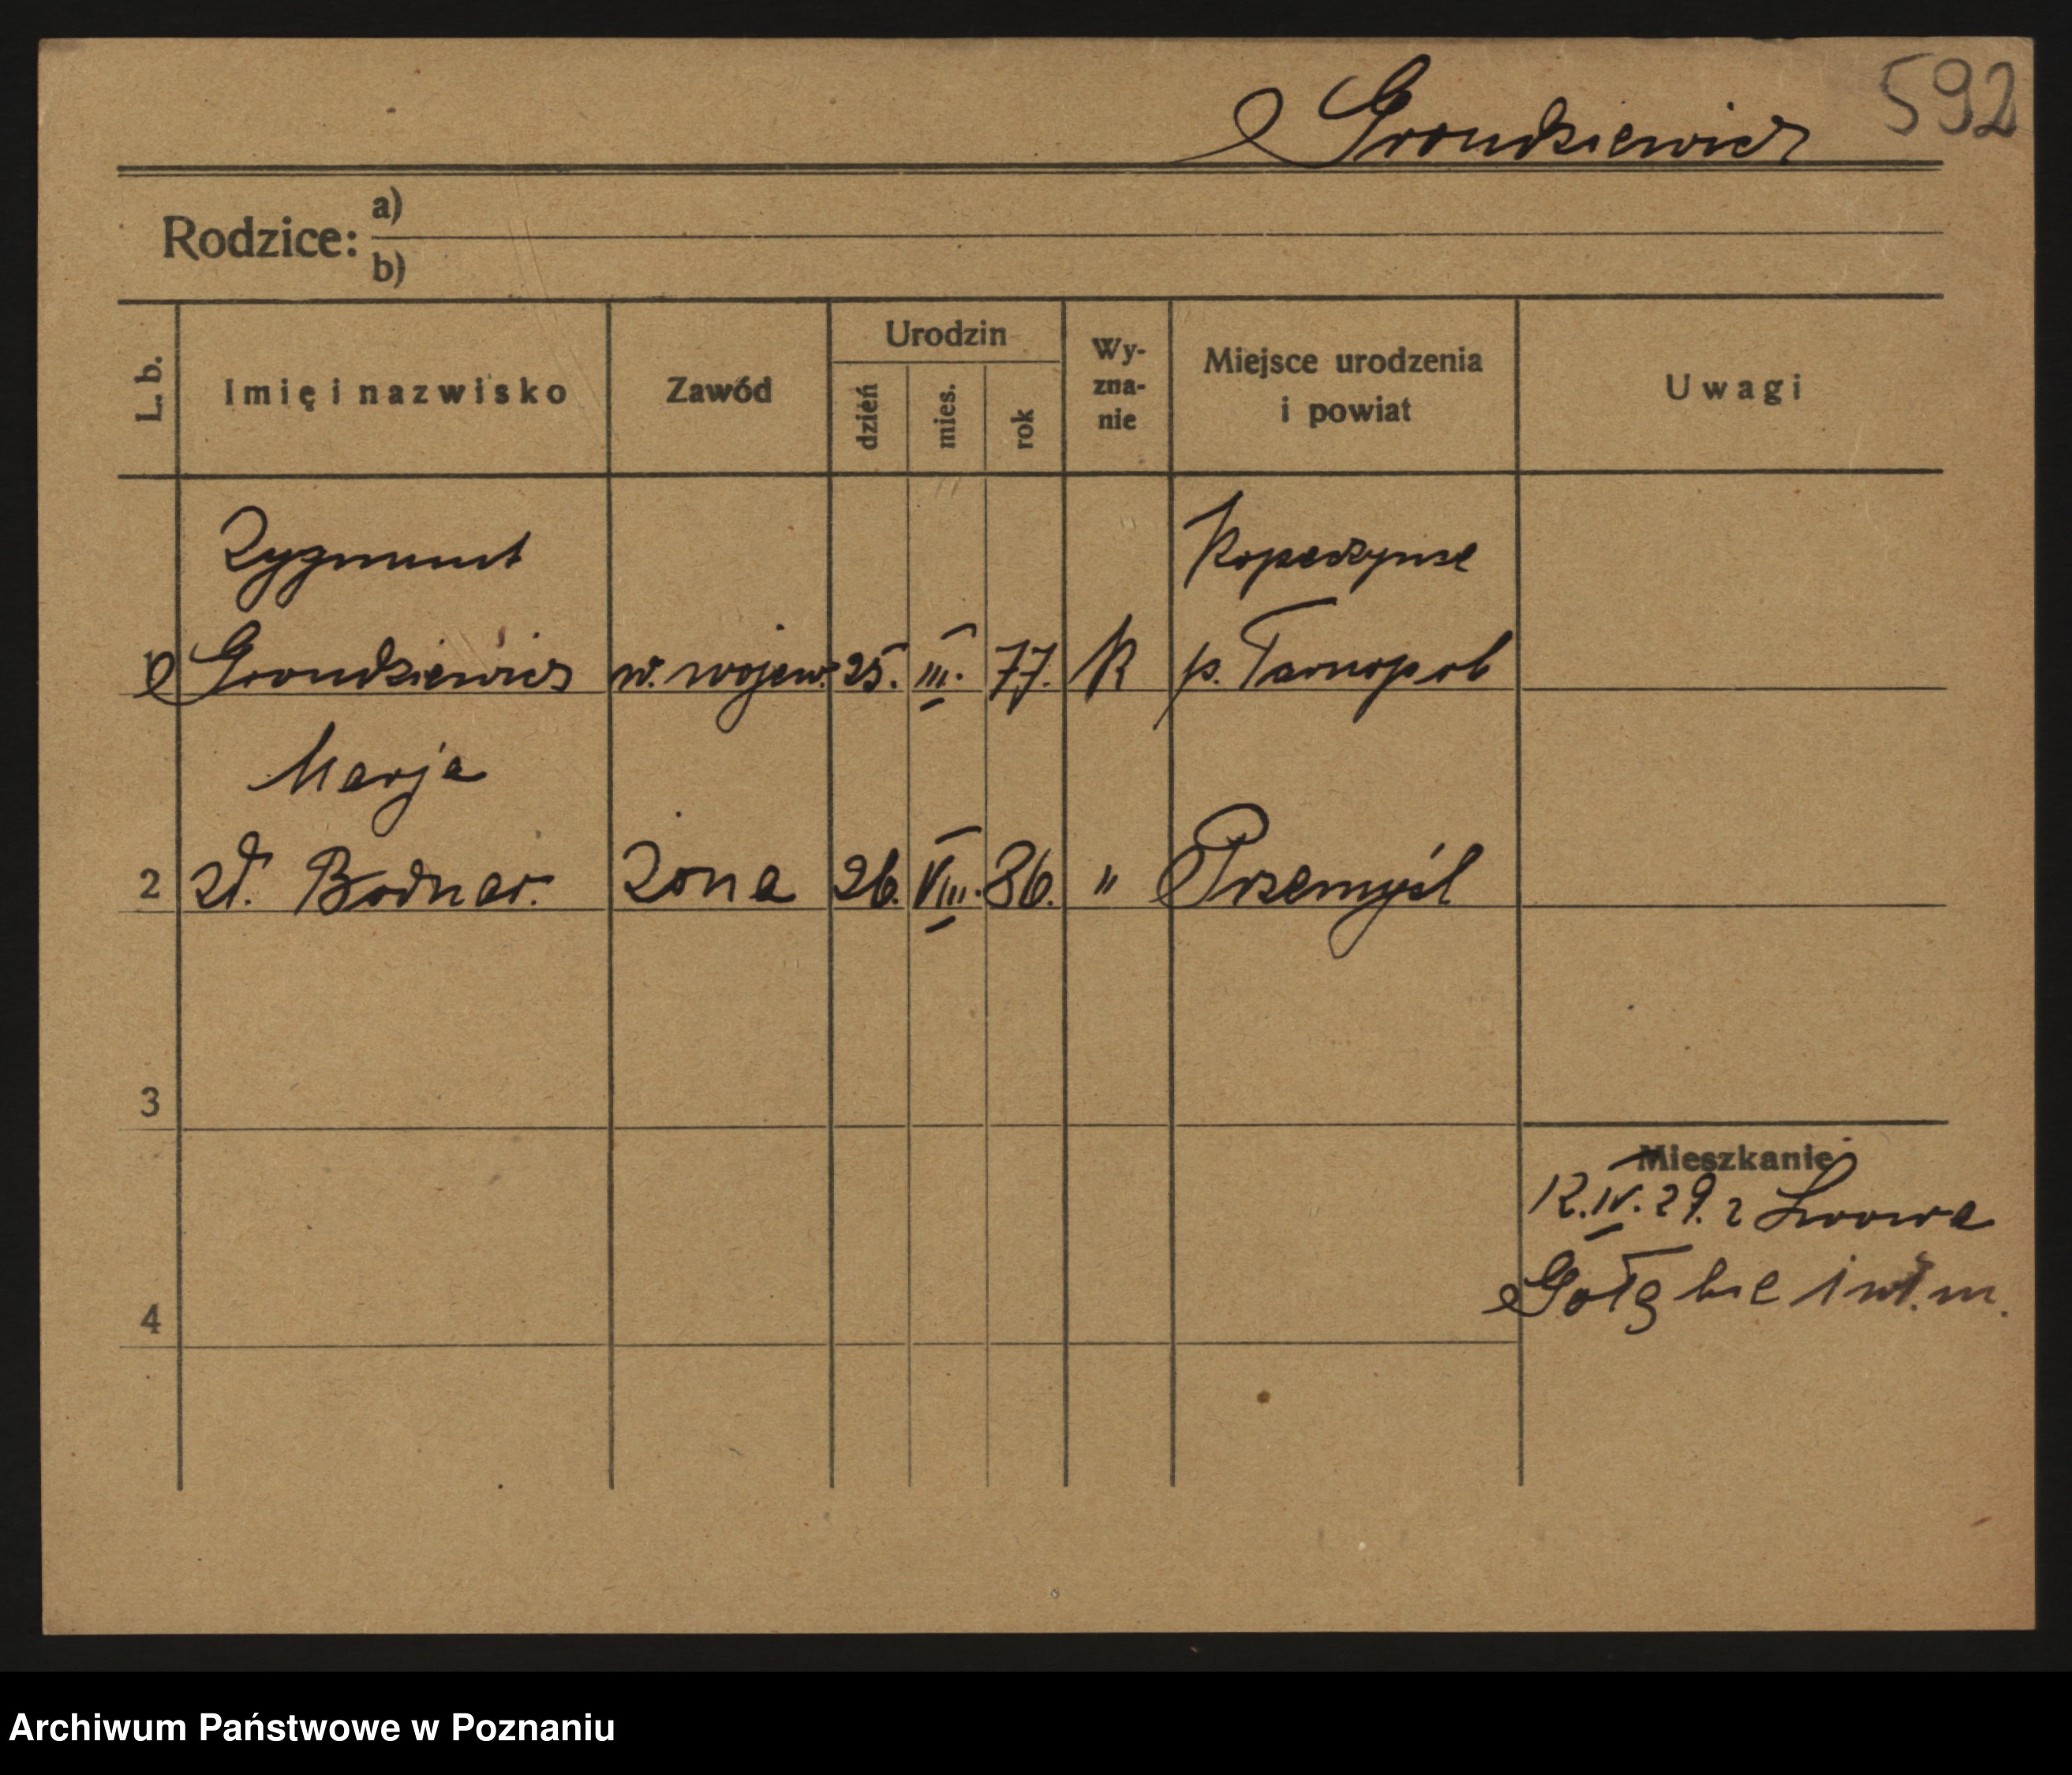 592
Grondziewicz
Rodzice: a)
b)
L. b.
Imię i nazwisko
Zawód
Urodzin
dzień
mies.
rok
Wy-
zna-
nie
Miejsce urodzenia
i powiat
Uwagi
Zygmunt
1 Grondziewicz w. wojew. 25. III. 77. R p. Tarnopol
Marja
2 zd. Bodnar. Żona 26. VIII. 86. " Przemyśl
3
Mieszkanie
12.IV.29. z Lwowa
Gołębie 1 wł. m.
4
Archiwum Państwowe w Poznaniu